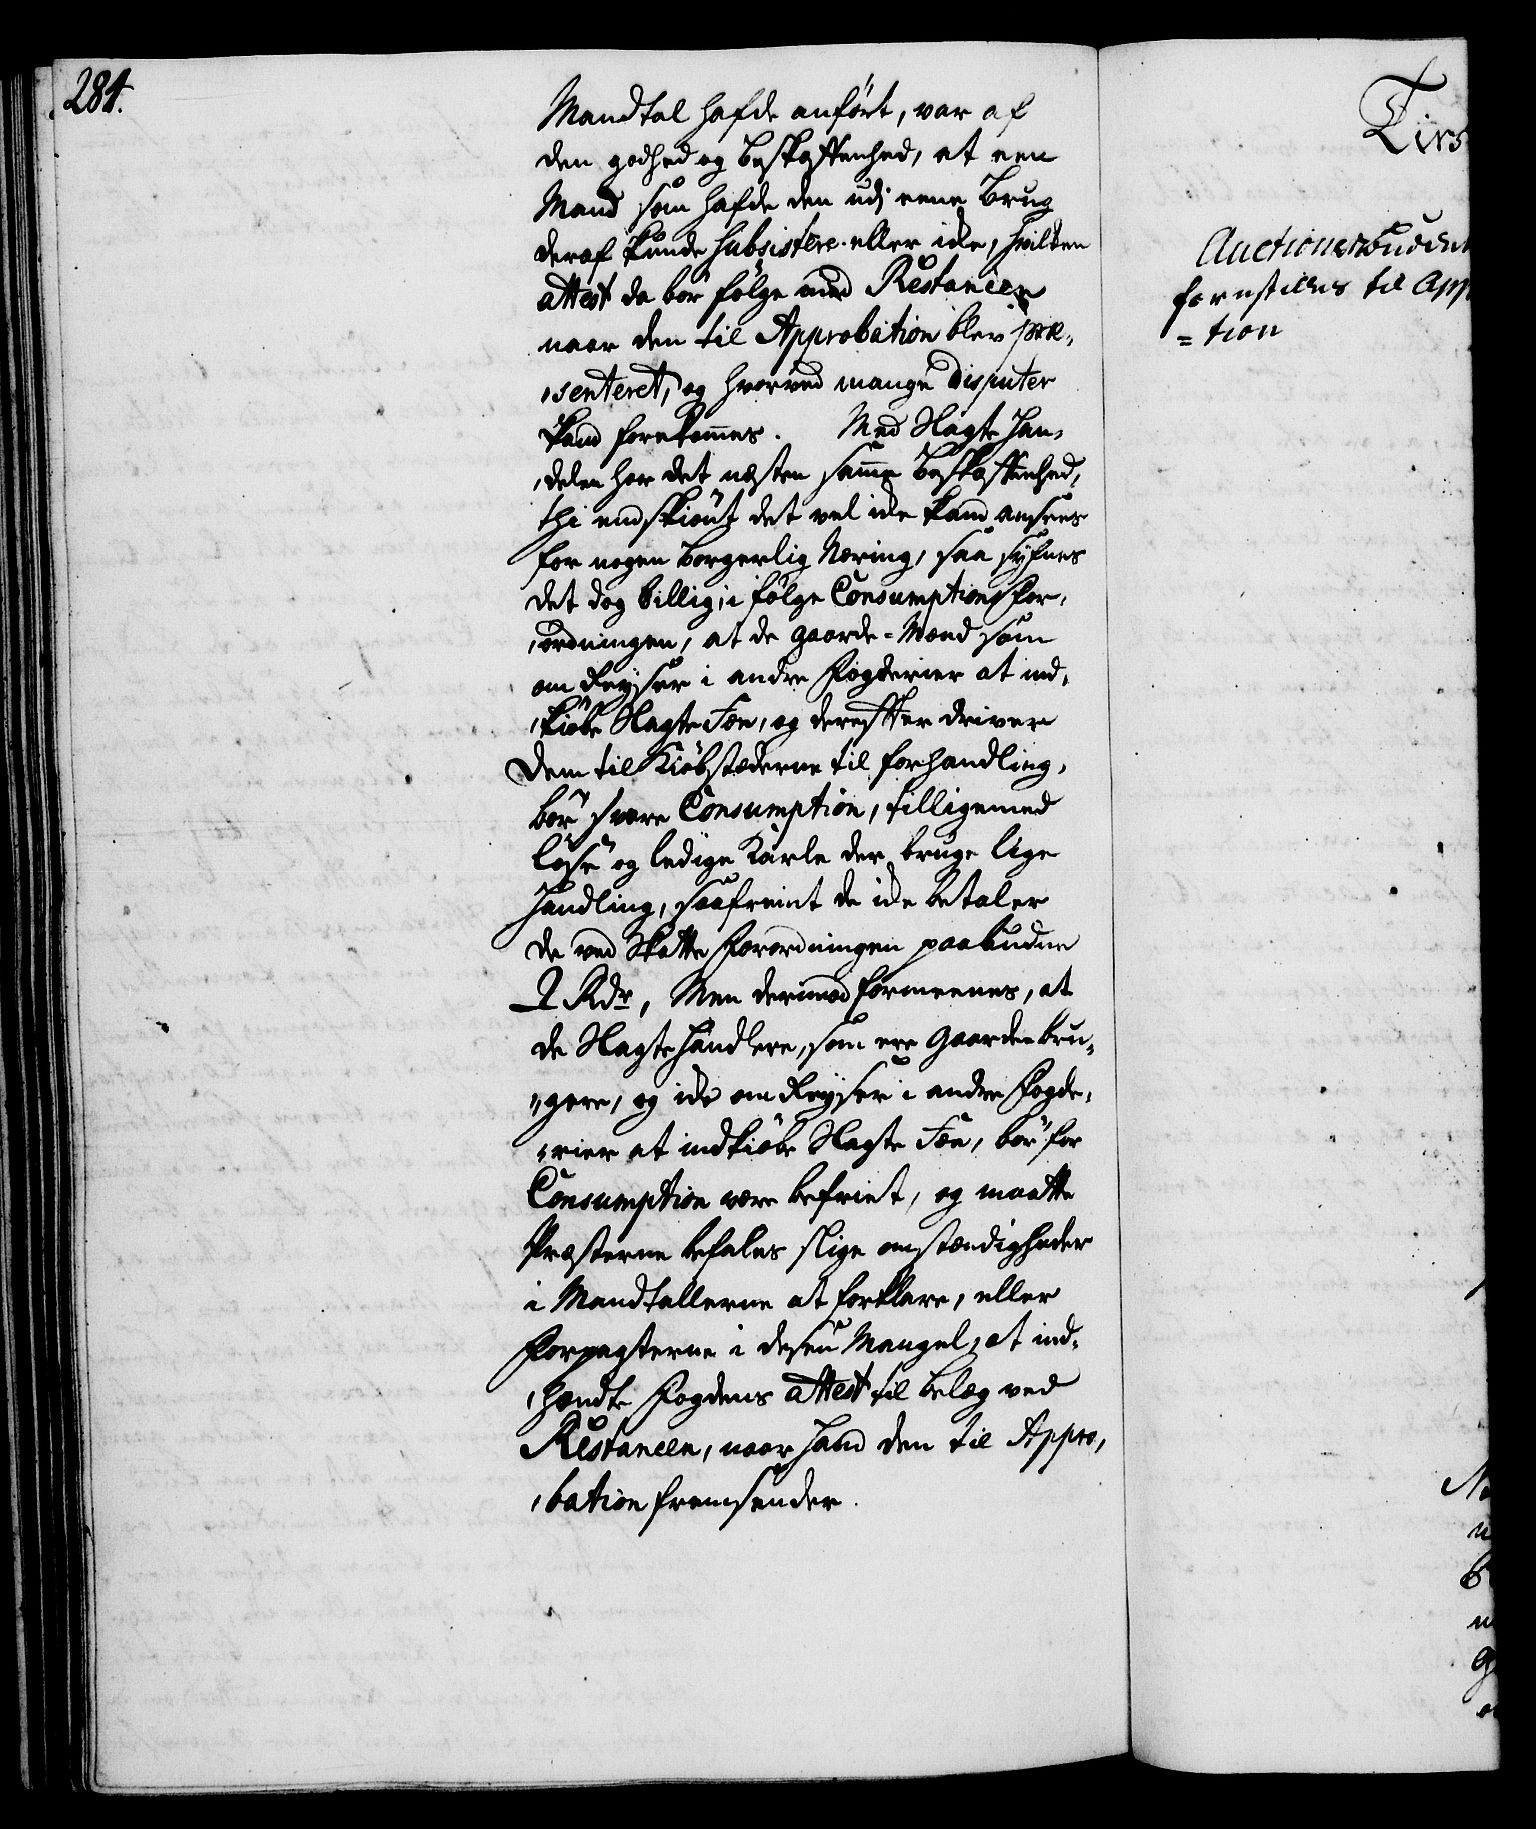 284.
Mandtal hafde anført, var af
den godhed og beskaffenhed, at een
Mand som hafde den udj eene Brug
deraf kunde subsistere eller icke, hvilken
attest da bør følge med Restancen
naar den til Approbation blev præ-
senteret, og hvorved mange Disputer
kand forekommes. Med Slagte Han-
delen har det næsten samme Beskaffenhed,
thi endskiønt det vel icke kand ansees
for nogen borgerlig Næring, saa syfnes
det dog billig i følge Consumptions For-
ordningen, at de Gaarde-Mænd som
om Reyser i andre Fogderier at ind-
kiøbe Slagte Fæe, og derefter driver
dem til Kiøbstæderne til forhandling,
bør svare Consumption, tilligemed
løse og ledige Karle der bruge lige
Handling, saafremt de icke betaler
de ved Skatte Forordningen paabudne
2 Rdr, Men derimod formeenes, at
de Slagtehandlere, som ere Gaardebru-
gere, og icke om Reyser i andre Fogde-
rier at indkiøbe Slagte Fæe, bør for
Consumption være befriet, og maatte
Præsterne befales slige omstændigheder
i Mandtallerne at forklare, eller
Forpagterne i desen Mangel, at ind-
hændte Fogdens attest til belæg ved
Restancen, naar Hand den til Appro-
bation fremsender.
Tirs
Auctions
forestilles til App
=tion